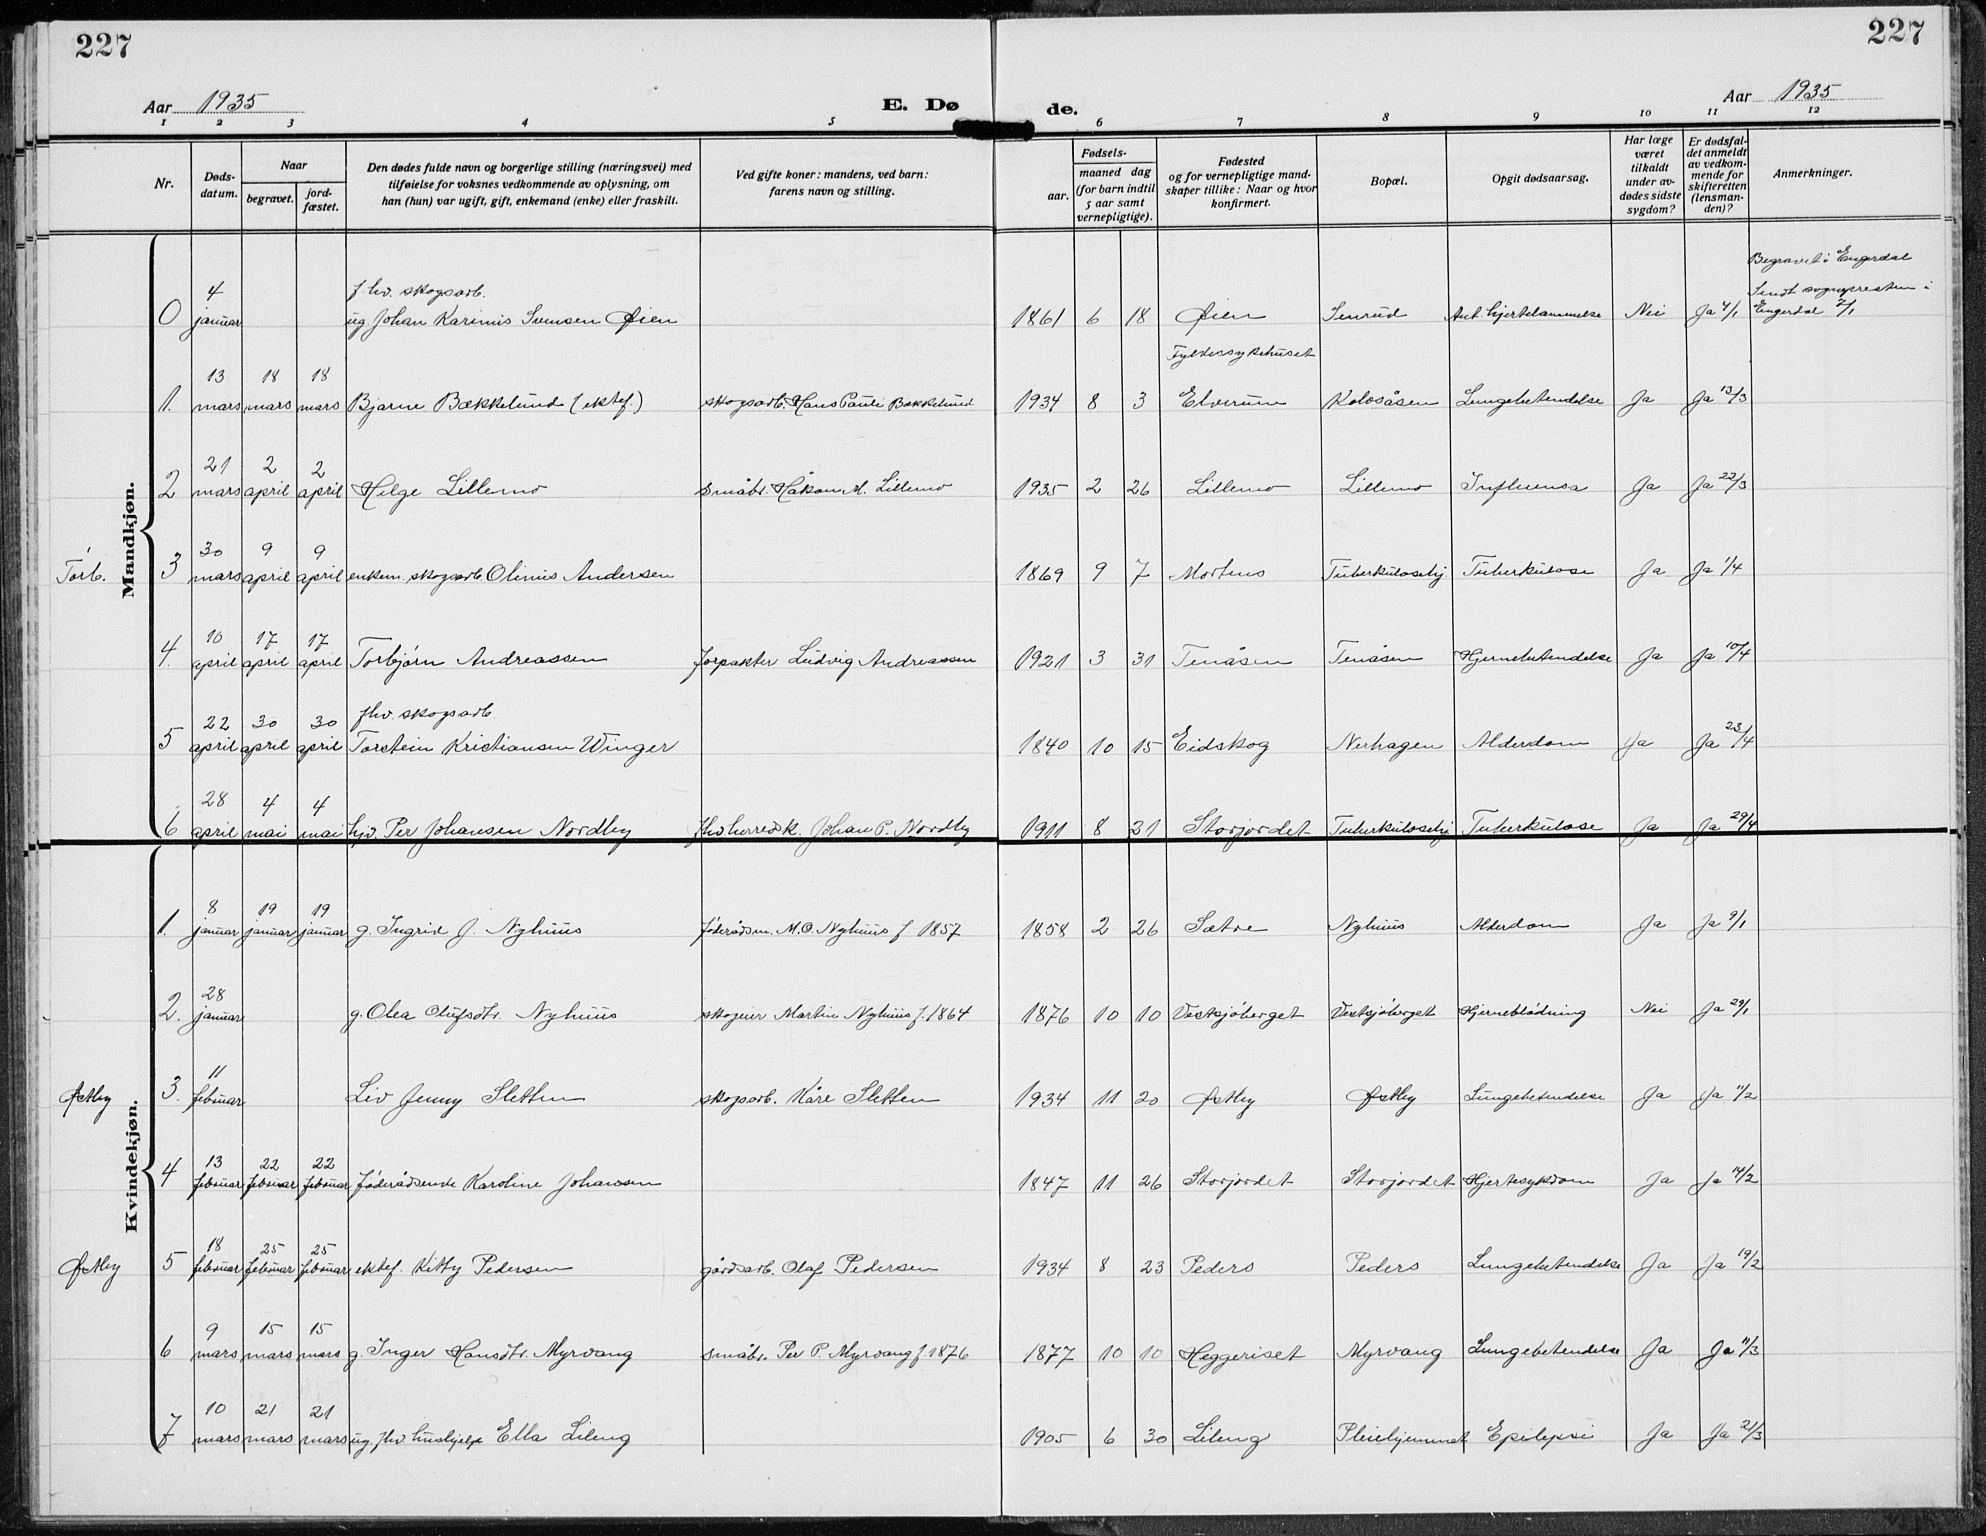 227
227
Aar 1935
E. Dø
de.
Aar 1935
1 2 3 4 5 6 7 8 9 10 11 12
Nr.
Døds-
datum.
Naar
begravet.
jord-
fæstet.
Den dødes fulde navn og borgerlige stilling (næringsvei) med
tilføielse for voksnes vedkommende av oplysning, om
han (hun) var ugift, gift, enkemand (enke) eller fraskilt.
Ved gifte koner: mandens, ved barn:
farens navn og stilling.
Fødsels-
aar.
maaned dag
(for barn indtil
5 aar samt
vernepligtige).
Fødested
og for vernepligtige mand-
skaper tillike: Naar og hvor
konfirmert.
Bopæl.
Opgit dødsaarsag.
Har læge
været
tilkaldt
under av-
dødes sidste
sygdom?
Er dødsfal-
det anmeldt
av vedkom-
mende for
skifteretten
(lensman-
den)?
Anmerkninger.
Mandkjøn.
Begravet i Engerdal
4 f.hv. skogsarb. Sendt sognepresten i
0 januar ug. Johan Karinius Svensen Øien 1861 6 18 Øien Senrud Ant. hjertelammelse Nei Ja 4/1 Engerdal 7/1
13 18 18 Fylkessykehuset
1. mars mars mars Bjarne Bækkelund (ektef.) skogsarb. Hans Pauli Bækkelund 1934 8 3 Elverum Kolosåsen Lungebetendelse Ja Ja 13/3
21 2 2
2 mars april april Helge Lillemo småbr. Håkon M. Lillemo 1935 2 26 Lillemo Lillemo Influensa Ja Ja 22/3
30 9 9
Törb. 3 mars april april enkem. skogsarb. Olinus Andersen 1869 9 7 Mortens Tuberkulosehj. Tuberkulose Ja Ja 1/4
10 17 17
4. april april april Torbjørn Andreassen forpakter Ludvig Andreassen 1921 3 31 Tenåsen Tenåsen Hjernebetendelse Ja Ja 10/4
22 30 30 fhv. skogsarb.
5 april april april Torstein Kristiansen Winger 1840 10 15 Eidskog Nerhagen Alderdom Ja Ja 23/4
28 4 4
6 april mai mai hjv. Per Johansen Nordby fhv. herredsk. Johan P. Nordby 1911 8 21 Storjordet Tuberkulosehj. Tuberkulose Ja Ja 29/4
Kvindekjøn.
8 19 19
1. januar januar januar g. Ingrid J. Nyhuus føderådsm. M.O. Nyhuus f. 1857 1858 2 26 Sætre Nyhuus Alderdom Ja Ja 9/1
28
2. januar g. Olea Olufsdtr. Nyhuus skogeier Martin Nyhuus f. 1864 1876 10 10 Vestsjöberget Vestsjöberget Hjerneblödning Nei Ja 29/1
11
Østby 3. februar Liv Jenny Sletten skogsarb. Kåre Sletten 1934 11 20 Østby Østby Lungebetendelse Ja Ja 11/2
13 22 22
4 februar februar februar föderådsenke Karoline Johansen 1847 11 26 Storjordet Storjordet Hjertesykdom Ja Ja 14/2
18 25 25
Østby 5 februar februar februar ektef. Kitty Pedersen gårdsarb. Olaf Pedersen 1934 8 23 Peders Peders Lungebetendelse Ja Ja 19/2
9 15 15
6 mars mars mars g. Inger Hansdtr. Myrvang småbr. Per P. Myrvang f. 1876 1877 10 10 Heggeriset Myrvang Lungebetendelse Ja Ja 11/3
10 21 21
7 mars mars mars ug. fhv. hushjelp Ella Lileng 1905 6 30 Lileng Pleiehjemmet Epilepsi Ja Ja 21/3